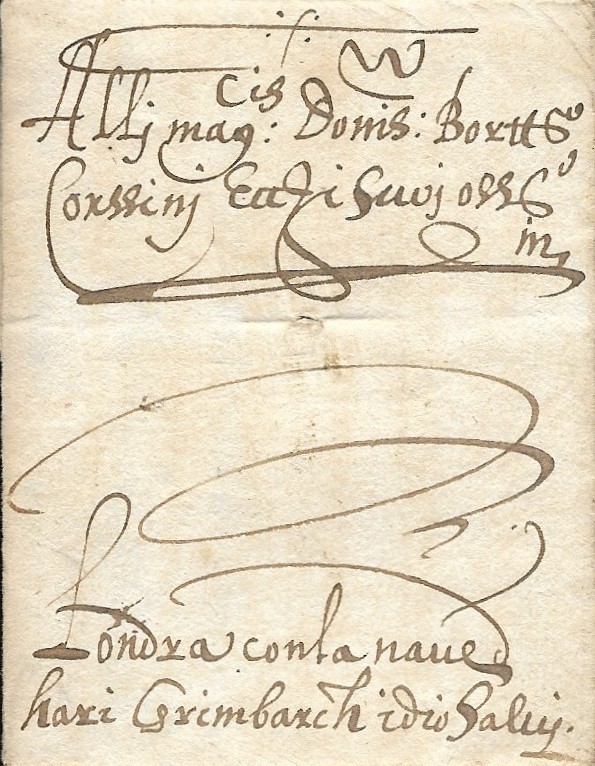 Alli mag:cis Domis: Bortt So
Corssinj Ecch i suoi oss So
in
Londra con la nave d
hari Grimbarch idio salvj.